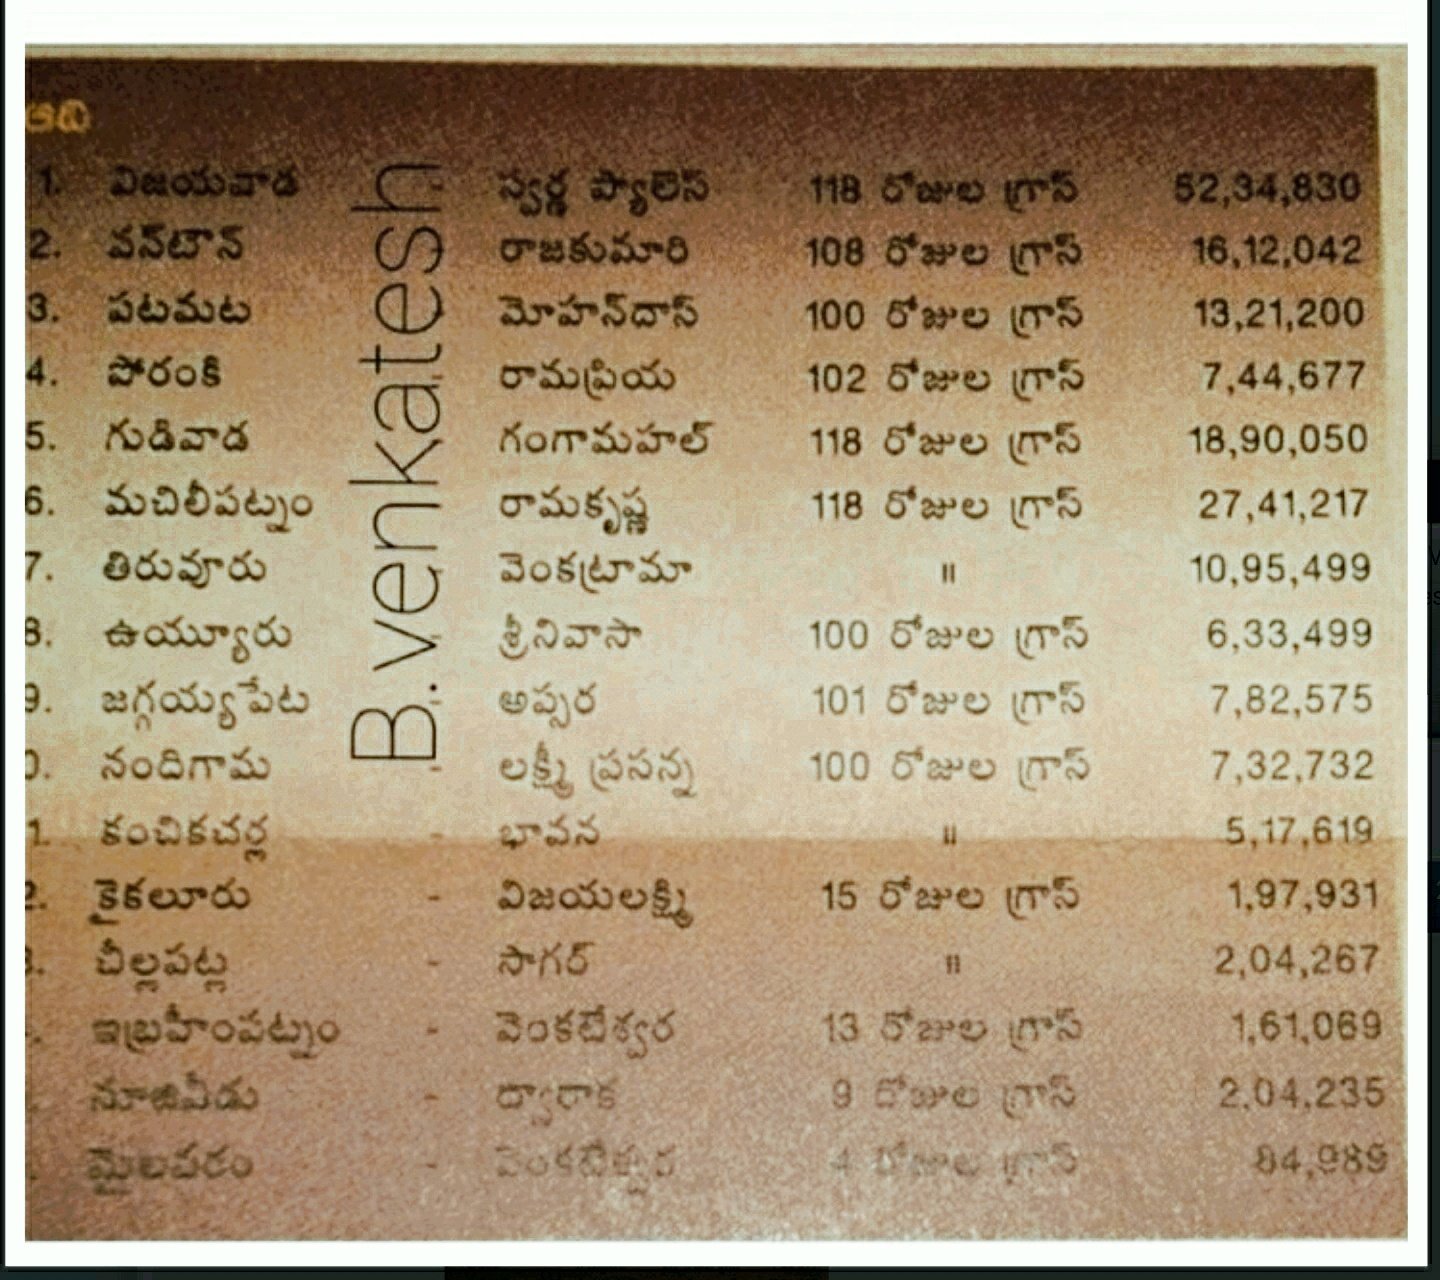 ఆది
1. విజయవాడ - స్వర్ణ ప్యాలెస్ 118 రోజుల గ్రాస్ 52,34,830
2. వన్‌టౌన్ - రాజకుమారి 108 రోజుల గ్రాస్ 16,12,042
3. పటమట - మోహన్‌దాస్ 100 రోజుల గ్రాస్ 13,21,200
4. పోరంకి - రామప్రియ 102 రోజుల గ్రాస్ 7,44,677
5. గుడివాడ - గంగామహల్ 118 రోజుల గ్రాస్ 18,90,050
6. మచిలీపట్నం - రామకృష్ణ 118 రోజుల గ్రాస్ 27,41,217
7. తిరువూరు - వెంకట్రామా " 10,95,499
8. ఉయ్యూరు - శ్రీనివాసా 100 రోజుల గ్రాస్ 6,33,499
9. జగ్గయ్యపేట - అప్సర 101 రోజుల గ్రాస్ 7,82,575
0. నందిగామ - లక్ష్మీ ప్రసన్న 100 రోజుల గ్రాస్ 7,32,732
1. కంచికచర్ల - భావన " 5,17,619
2. కైకలూరు - విజయలక్ష్మి 15 రోజుల గ్రాస్ 1,97,931
3. చిల్లపట్ల - సాగర్ " 2,04,267
ఇబ్రహీంపట్నం - వెంకటేశ్వర 13 రోజుల గ్రాస్ 1,61,069
నూజివీడు - ద్వారాక 9 రోజుల గ్రాస్ 2,04,235
మైలవరం - వెంకటేశ్వర 4 రోజుల గ్రాస్ 84,989
B.venkatesh